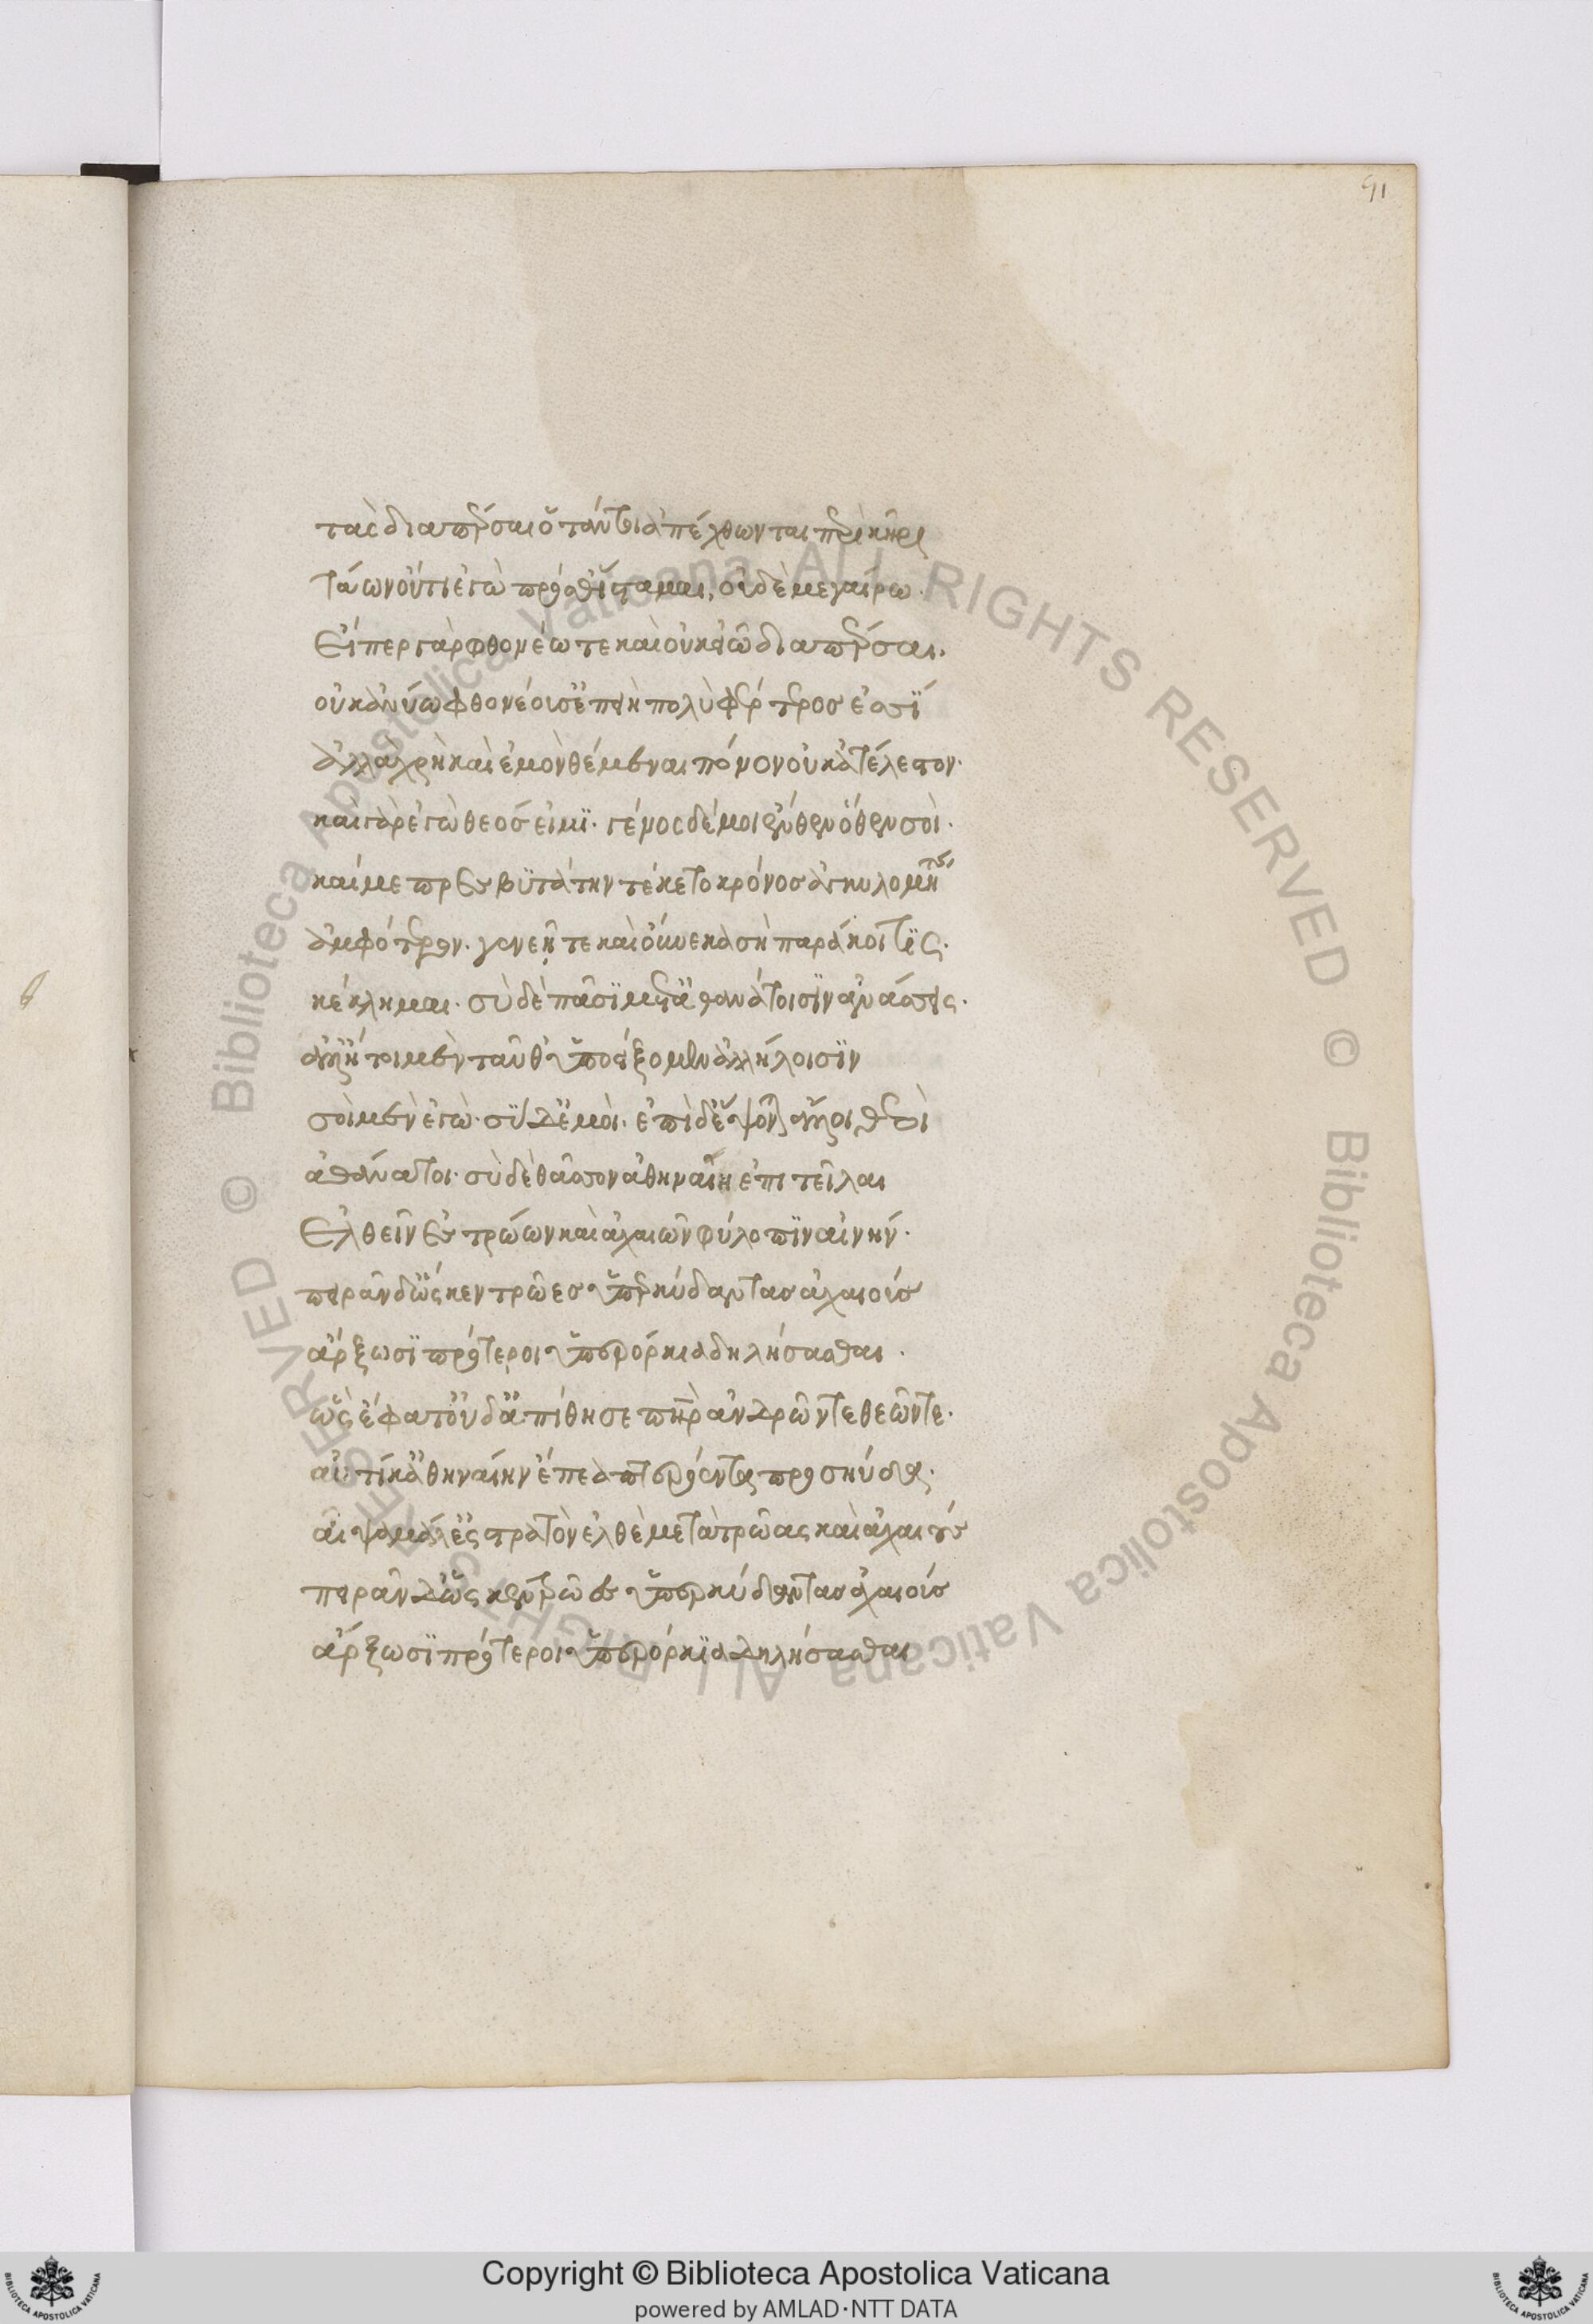 91
τὰς διαπέρσαι ὅτ' ἄν τοι ἀπέχθωνται περὶ κῆρι
τάων οὔτι ἐγὼ πρόσθ' ἵσταμαι, οὐδὲ μεγαίρω.
Εἴπερ γὰρ φθονέω τε καὶ οὐκ εἰῶ διαπέρσαι.
οὐκ ἀνύω φθονέουσ' ἐπειὴ πολὺ φέρτερος ἐσσί
ἀλλὰ χρὴ καὶ ἐμὸν θέμεναι πόνον οὐκ ἀτέλεστον.
καὶ γὰρ ἐγὼ θεός εἰμι. γένος δέ μοι ἔνθεν ὅθεν σοὶ.
καί με πρεσβυτάτην τέκετο κρόνος ἀγκυλομήτης
ἀμφότερον. γενεῇ τε καὶ οὕνεκα σὴ παράκοιτις.
κέκλημαι. σὺ δὲ πᾶσι μετ' ἀθανάτοισιν ἀνάσσεις.
ἀλλ' ἤτοι μὲν ταῦθ' ὑποείξομεν ἀλλήλοισιν
σοὶ μὲν ἐγὼ. σὺ δ' ἐμοὶ. ἐπὶ δ' ἕψονται θεοὶ ἄλλοι
ἀθάνατοι. σὺ δὲ θᾶσσον ἀθηναίῃ ἐπιτεῖλαι
Ἐλθεῖν ἐς τρώων καὶ ἀχαιῶν φύλοπιν αἰνήν.
πειρᾶν δ' ὥς κεν τρῶες ὑπερκύδαντας ἀχαιούς
ἄρξωσι πρότεροι ὑπὲρ ὅρκια δηλήσασθαι.
ὣς ἔφατ' οὐδ' ἀπίθησε πατὴρ ἀνδρῶν τε θεῶν τε.
αὐτίκ' ἀθηναίην ἔπεα πτερόεντα προσηύδα.
αἶψα μάλ' ἐς στρατὸν ἐλθὲ μετὰ τρῶας καὶ ἀχαιούς
πειρᾶν δ' ὥς κεν τρῶες ὑπερκύδαντας ἀχαιούς
ἄρξωσι πρότεροι ὑπὲρ ὅρκια δηλήσασθαι
© Biblioteca Apostolica Vaticana ALL RIGHTS RESERVED © Biblioteca Apostolica Vaticana ALL RIGHTS RESERVED
Copyright © Biblioteca Apostolica Vaticana
powered by AMLAD·NTT DATA
BIBLIOTECA APOSTOLICA VATICANA
BIBLIOTECA APOSTOLICA VATICANA